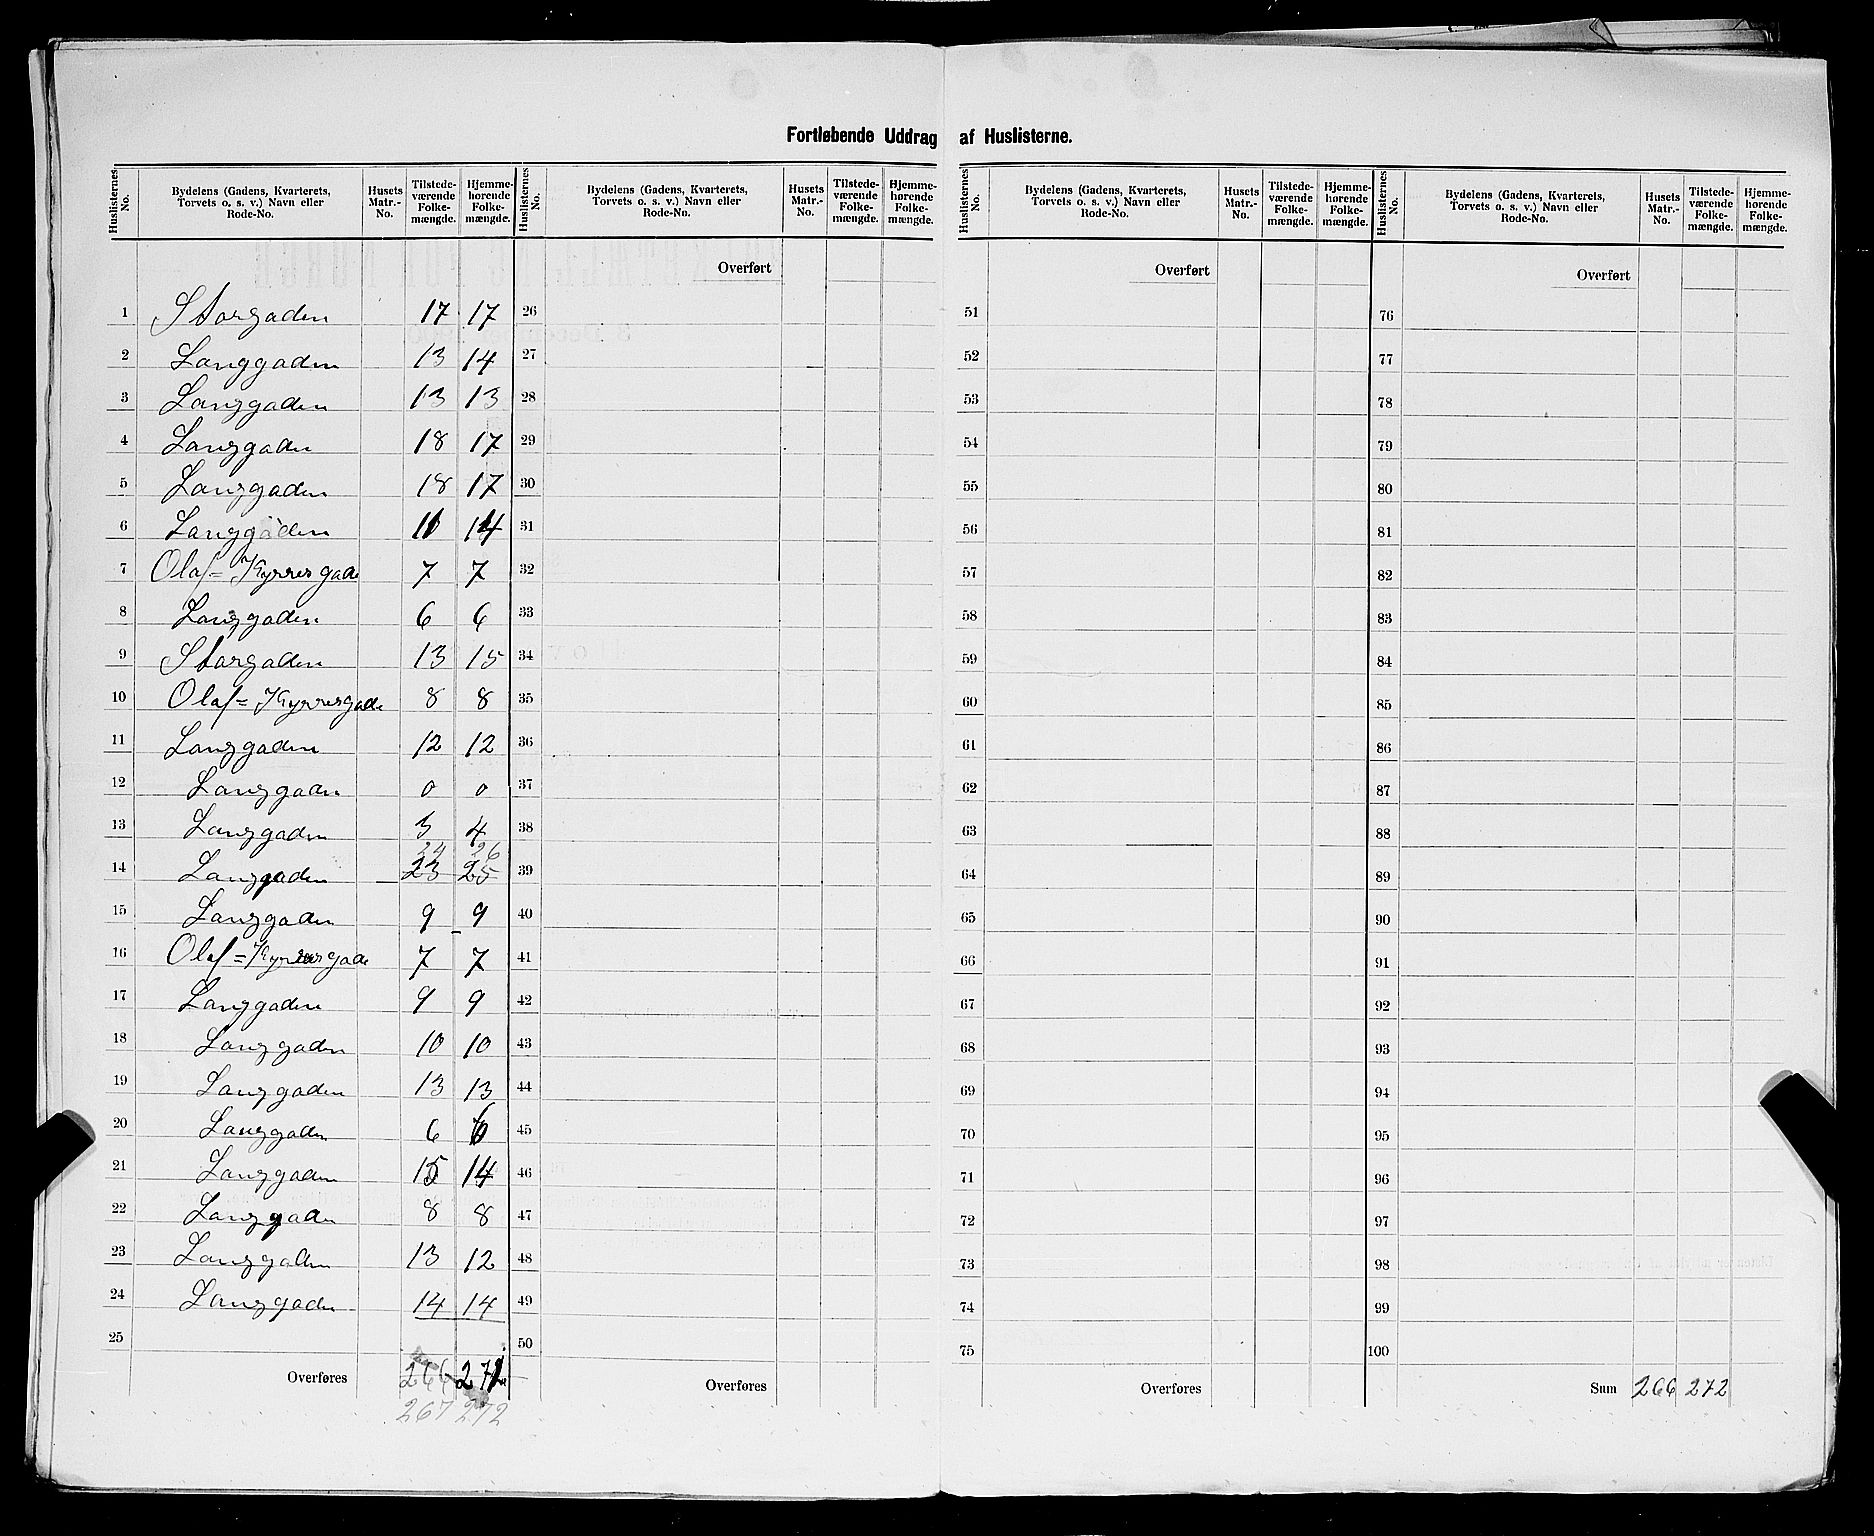 Fortløbende Uddrag af Huslisterne.
Huslisternes No. | Bydelens (Gadens, Kvarterets, Torvets o. s. v.) Navn eller Rode-No. | Husets Matr.-No. | Tilstede-værende Folke-mængde. | Hjemme-hørende Folke-mængde. | Huslisternes No. | Bydelens (Gadens, Kvarterets, Torvets o. s. v.) Navn eller Rode-No. | Husets Matr.-No. | Tilstede-værende Folke-mængde. | Hjemme-hørende Folke-mængde. | Huslisternes No. | Bydelens (Gadens, Kvarterets, Torvets o. s. v.) Navn eller Rode-No. | Husets Matr.-No. | Tilstede-værende Folke-mængde. | Hjemme-hørende Folke-mængde. | Huslisternes No. | Bydelens (Gadens, Kvarterets, Torvets o. s. v.) Navn eller Rode-No. | Husets Matr.-No. | Tilstede-værende Folke-mængde. | Hjemme-hørende Folke-mængde.
Overført Overført Overført
1 Storgaden 17 17 26 51 76
2 Langgaden 13 14 27 52 77
3 Langgaden 13 13 28 53 78
4 Langgaden 18 17 29 54 79
5 Langgaden 18 17 30 55 80
6 Langgaden 14 31 56 81
7 Olaf=Kyrresgade 7 7 32 57 82
8 Langgaden 6 6 33 58 83
9 Storgaden 13 15 34 59 84
10 Olaf=Kyrresgade 8 8 35 60 85
11 Langgaden 12 12 36 61 86
12 Langgaden 0 0 37 62 87
13 Langgaden 3 4 38 63 88
24 26
14 Langgaden 23 25 39 64 89
15 Langgaden 9 9 40 65 90
16 Olaf=Kyrresgade 7 7 41 66 91
17 Langgaden 9 9 42 67 92
18 Langgaden 10 10 43 68 93
19 Langgaden 13 13 44 69 94
20 Langgaden 6 6 45 70 95
21 Langgaden 15 14 46 71 96
22 Langgaden 8 8 47 72 97
23 Langgaden 13 12 48 73 98
24 Langgaden 14 14 49 74 99
25 50 75 100
Overføres 266 271 Overføres Overføres Sum 266 272
267 272